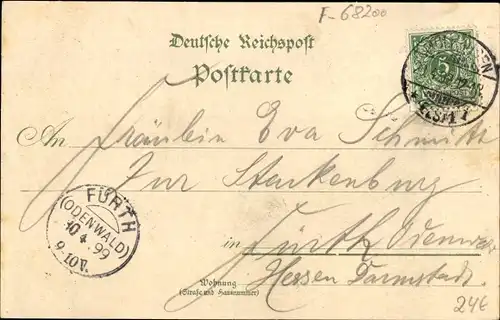 F-68200
Deutsche Reichspost
Postkarte
5
An Fräulein Eva Schmitt
Zur Starkenburg
in Fürth Odenwald
Hessen Darmstadt
Wohnung
(Straße und Hausnummer)
FÜRTH
(ODENWALD)
10 4 99
9-10V.
24€